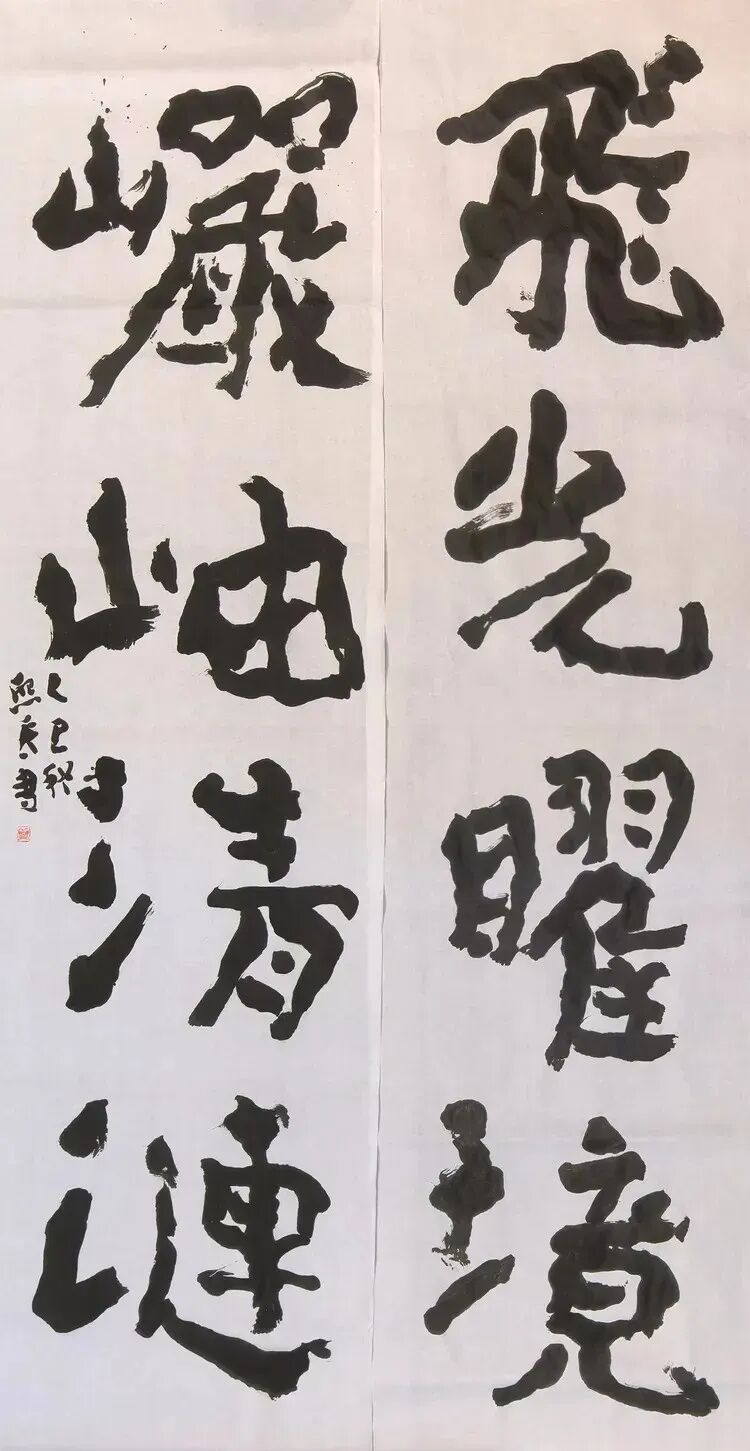 飛光曜境
巗岫清漣
乙巳秋
書